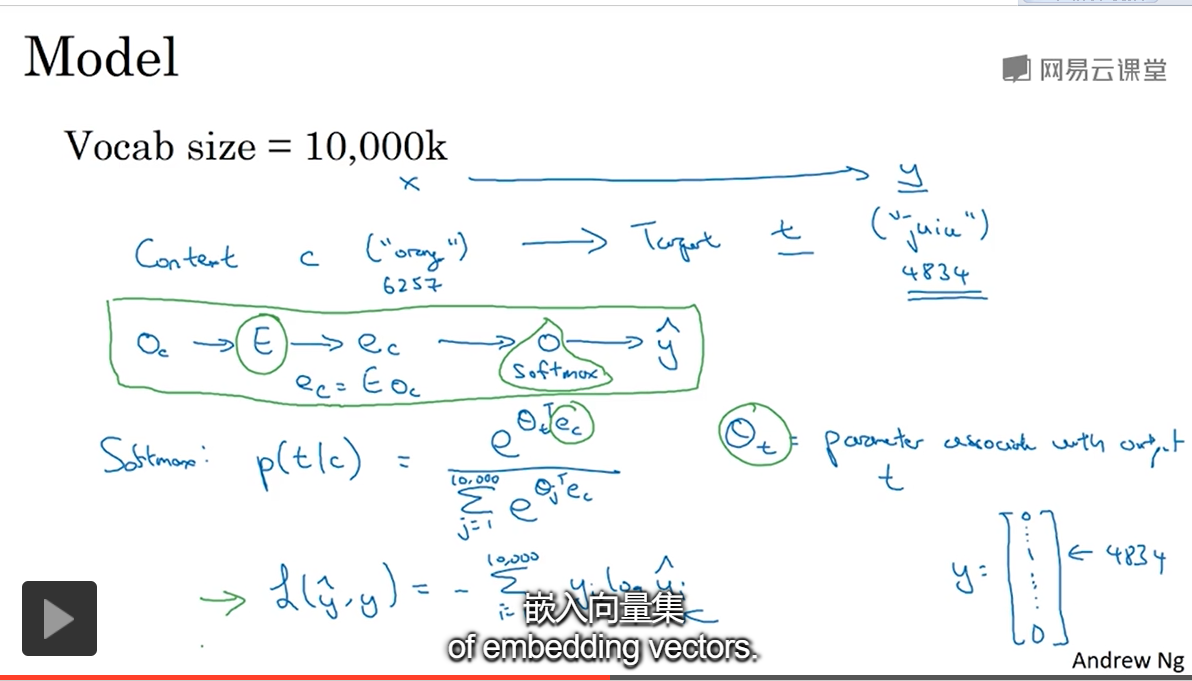 Model
网易云课堂
Vocab size = 10,000k
x → y
Content c ("orange") → Target t ("juice")
6257 4834
O_c → E → e_c → O → ŷ
Softmax
e_c = E O_c
Softmax: p(t|c) = e^{θ_t^T e_c} / Σ_{j=1}^{10,000} e^{θ_j^T e_c}
θ_t = parameter associate with output t
y = [0 ⋮ 1 ⋮ 0] ← 4834
→ ℒ(ŷ, y) = - Σ_{i=1}^{10,000} y_i log ŷ_i ←
嵌入向量集
of embedding vectors.
Andrew Ng